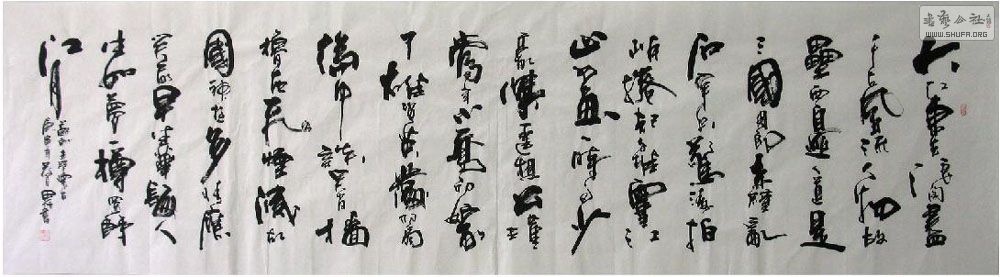 大江東去浪淘盡
千古風流人物故
壘西邊人道是
三國周郎赤壁亂
石穿空驚濤拍
岸捲起千堆雪江
山如畫一時多少
豪傑遙想公瑾
當年小喬初嫁
了雄姿英發羽扇
綸巾談笑間檣
櫓灰飛煙滅故
國神遊多情應
笑我早生華髮人
生如夢一樽還酹
江月
蘇軾赤壁懷古
书艺公社
WWW.SHUFA.ORG